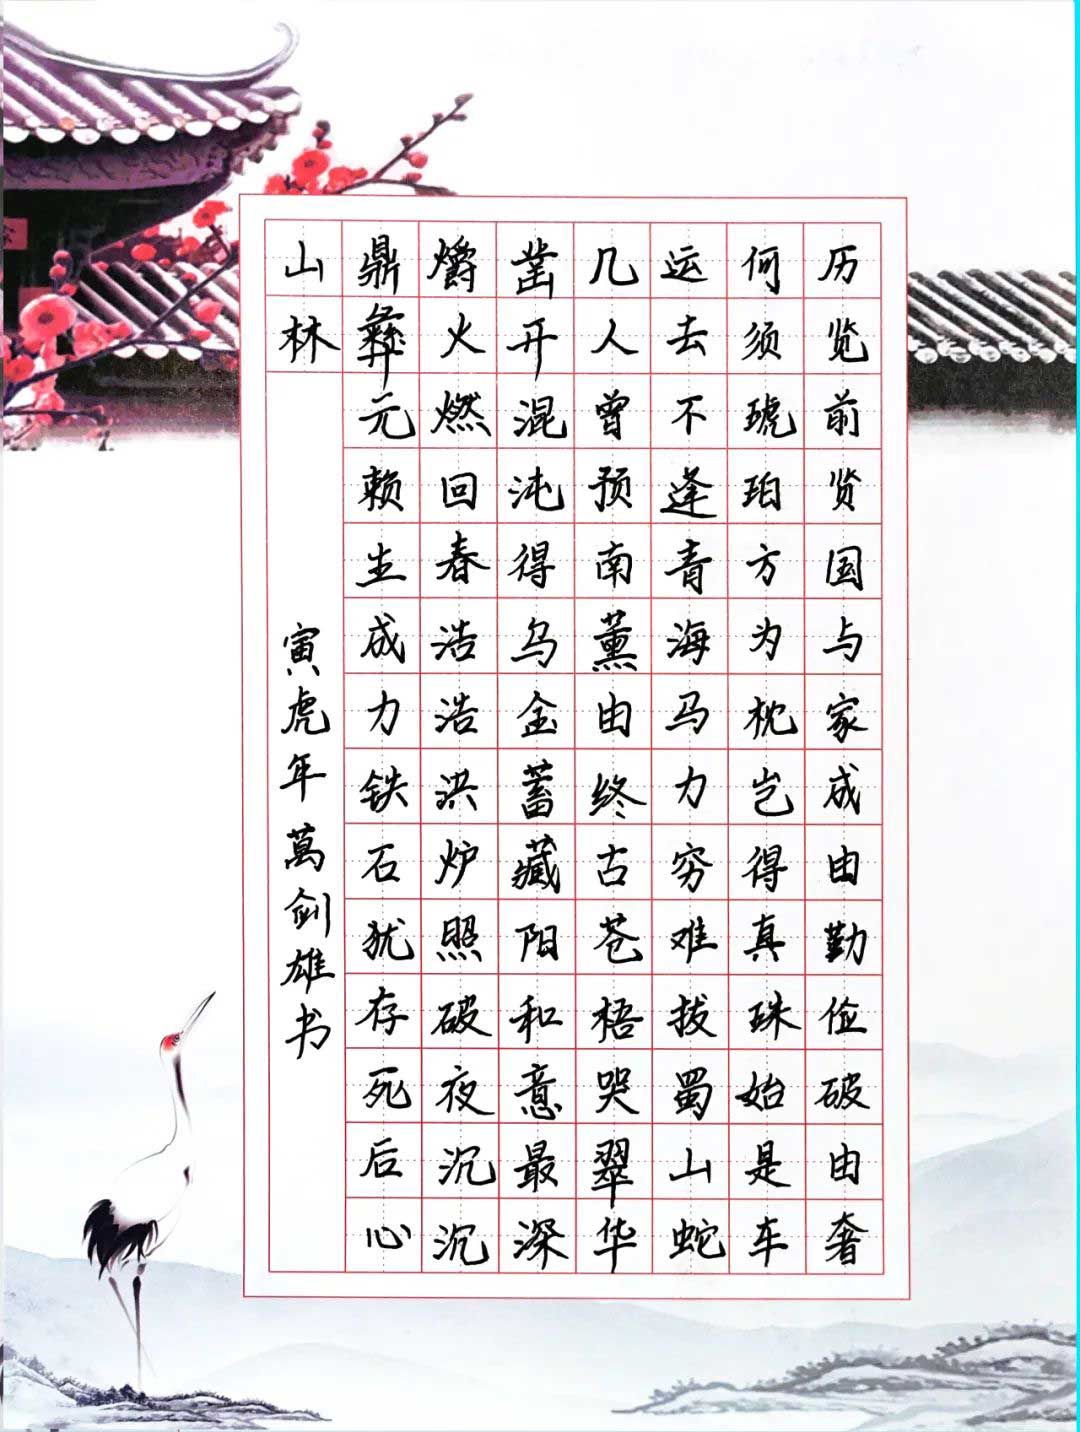 历览前贤国与家成由勤俭破由奢
何须琥珀方为枕岂得真珠始是车
运去不逢青海马力穷难拔蜀山蛇
几人曾预南薰由终古苍梧哭翠华
凿开混沌得乌金蓄藏阳和意最深
爝火燃回春浩浩洪炉照破夜沉沉
鼎彝元赖生成力铁石犹存死后心
山林
寅虎年萬剑雄书